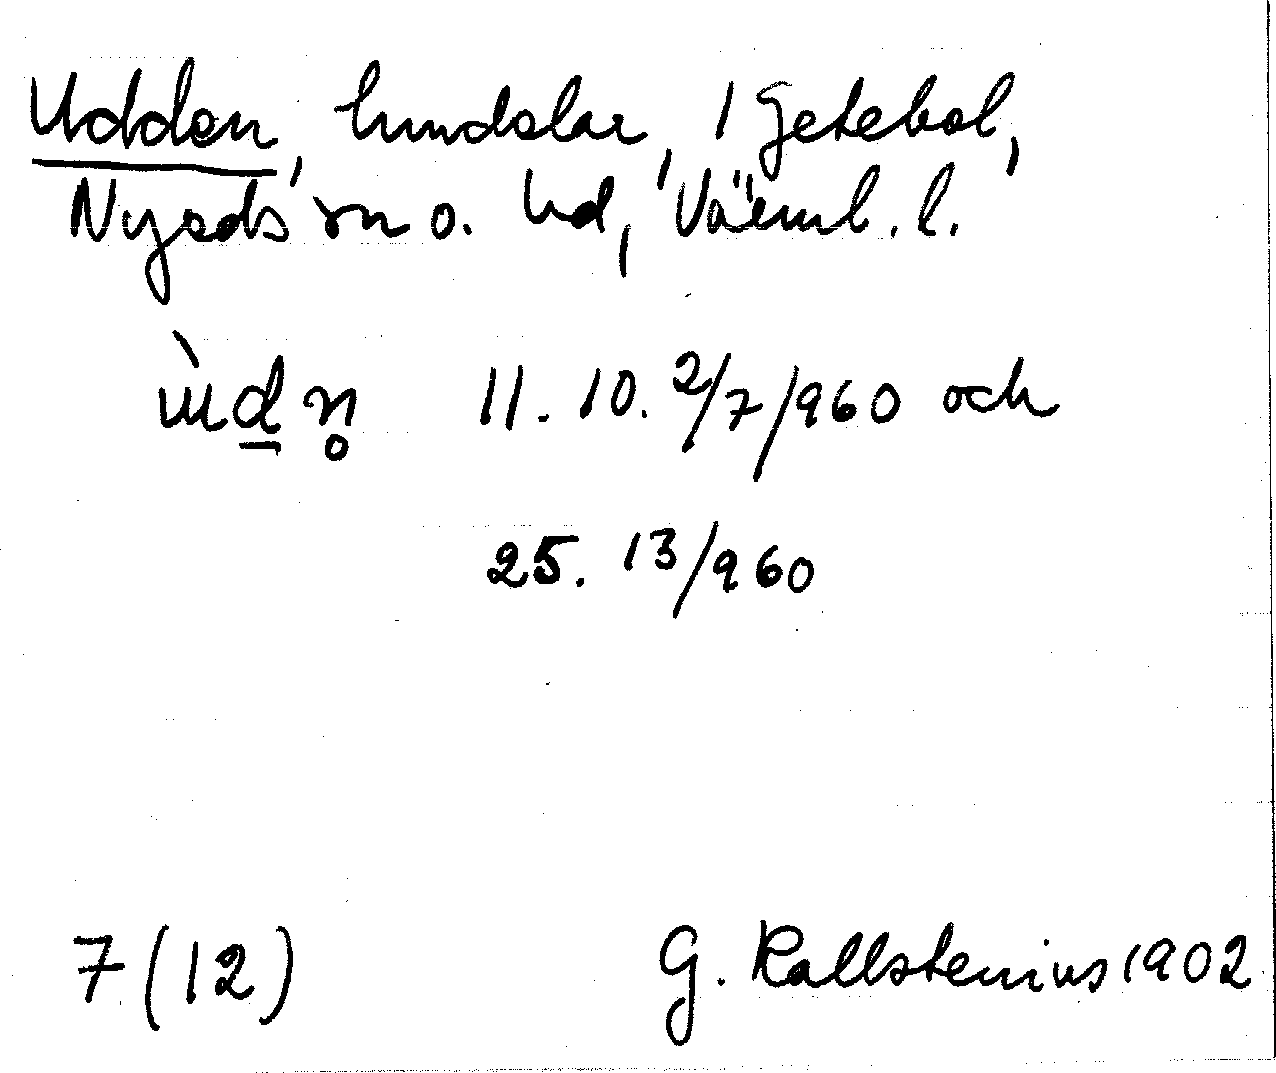 Udden, hmdelar, 1 Getebol,
Nyeds sn o. hd, Värml. l.
ùdn̥ 11. 10. 2/7/960 och
25. 13/960
7 (12) G. Kallstenius 1902